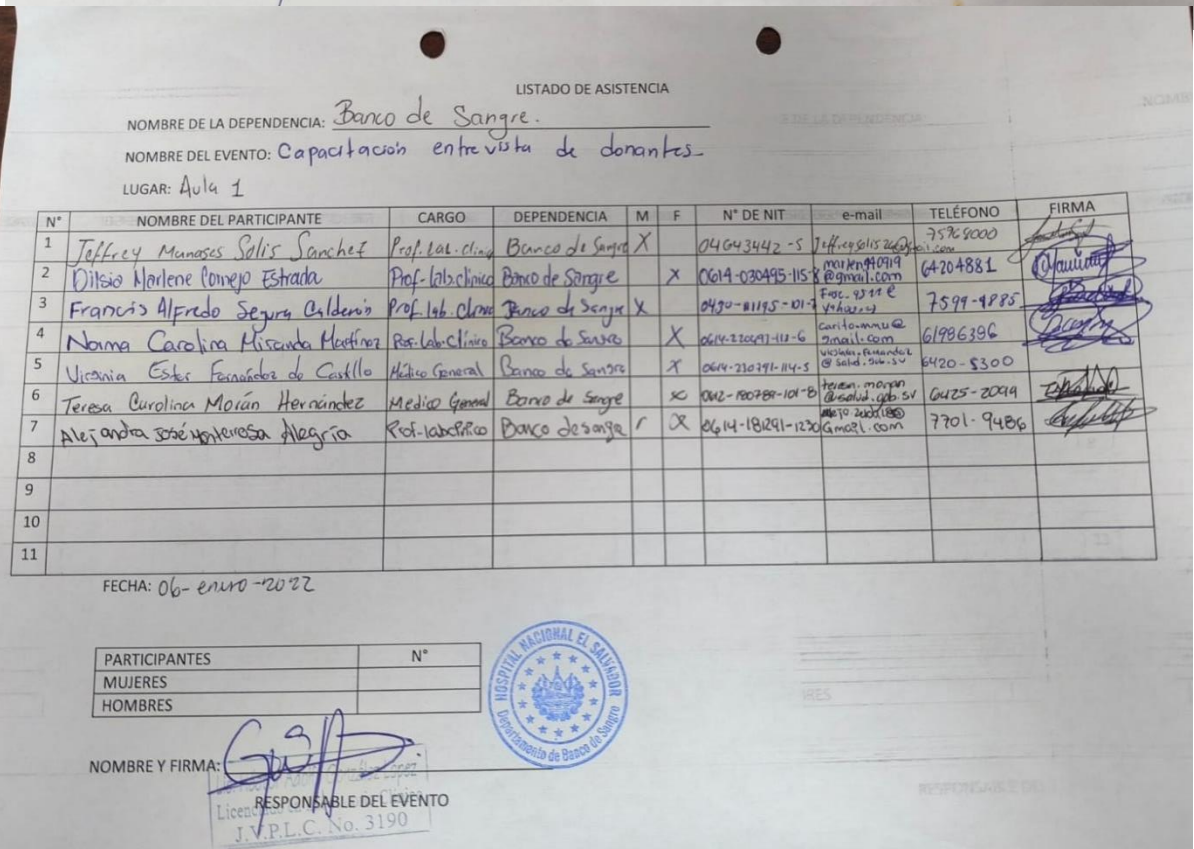 LISTADO DE ASISTENCIA
NOMBRE DE LA DEPENDENCIA: Banco de Sangre.
NOMBRE DEL EVENTO: Capacitación entrevista de donantes
LUGAR: Aula 1
N° NOMBRE DEL PARTICIPANTE CARGO DEPENDENCIA M F N° DE NIT e-mail TELÉFONO FIRMA
1 Jeffrey Manases Solis Sanchez Prof. Lab. clinic Banco de Sangre X 04643442-5
2 Marlene Cornejo Estrada Prof. Lab. clinico Banco de Sangre X 0614-030495-115-8 marlen940919 @gmail.com 64204881
3 Francis Alfredo Segura Calderón Prof. lab. Banco de Sangre X 7599-9885
4 Norma Carolina Miranda Martínez Prof. Lab. Clínico Banco de Sangre X @ gmail.com 61986396
5 Ester Fernández de Castillo Médico General Banco de Sangre X 0614-230791-114-5 @ salud.gob.sv 6420-5300
6 Teresa Carolina Morán Hernández Medico General Banco de Sangre x teresa.moran @salud.gob.sv 6425-2099
7 Alejandra José Monterrosa Alegría Banco de sangre X 0614-181291-1230 Gmail.com 7701-9486
8
9
10
11
FECHA: 06-enero-2022
PARTICIPANTES N°
MUJERES
HOMBRES
HOSPITAL NACIONAL EL SALVADOR
Departamento de Banco de Sangre
NOMBRE Y FIRMA:
RESPONSABLE DEL EVENTO
J.V.P.L.C. No. 3190